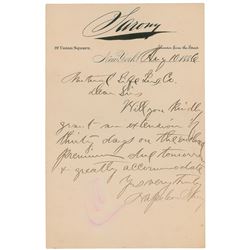 Sarony
37 Union Square.
New York, Aug 10 1886
Mutual Life Ins Co.
Dear Sirs
Will you kindly
grant an extension of
thirty days on the
premium due tomorrow
& greatly accommodate
Yours very truly
Napoleon Sarony